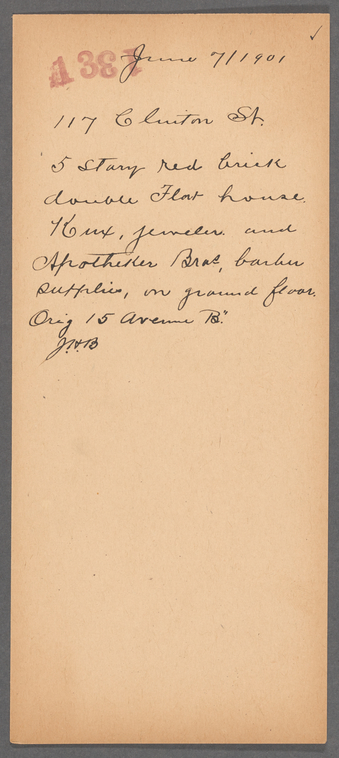 June 7/1901
117 Clinton St.
5 story red brick
double Flat house.
Kux, jeweler and
Apotheker Bros, barber
supplies, on ground floor.
Orig 15 Avenue B."
J.H.B